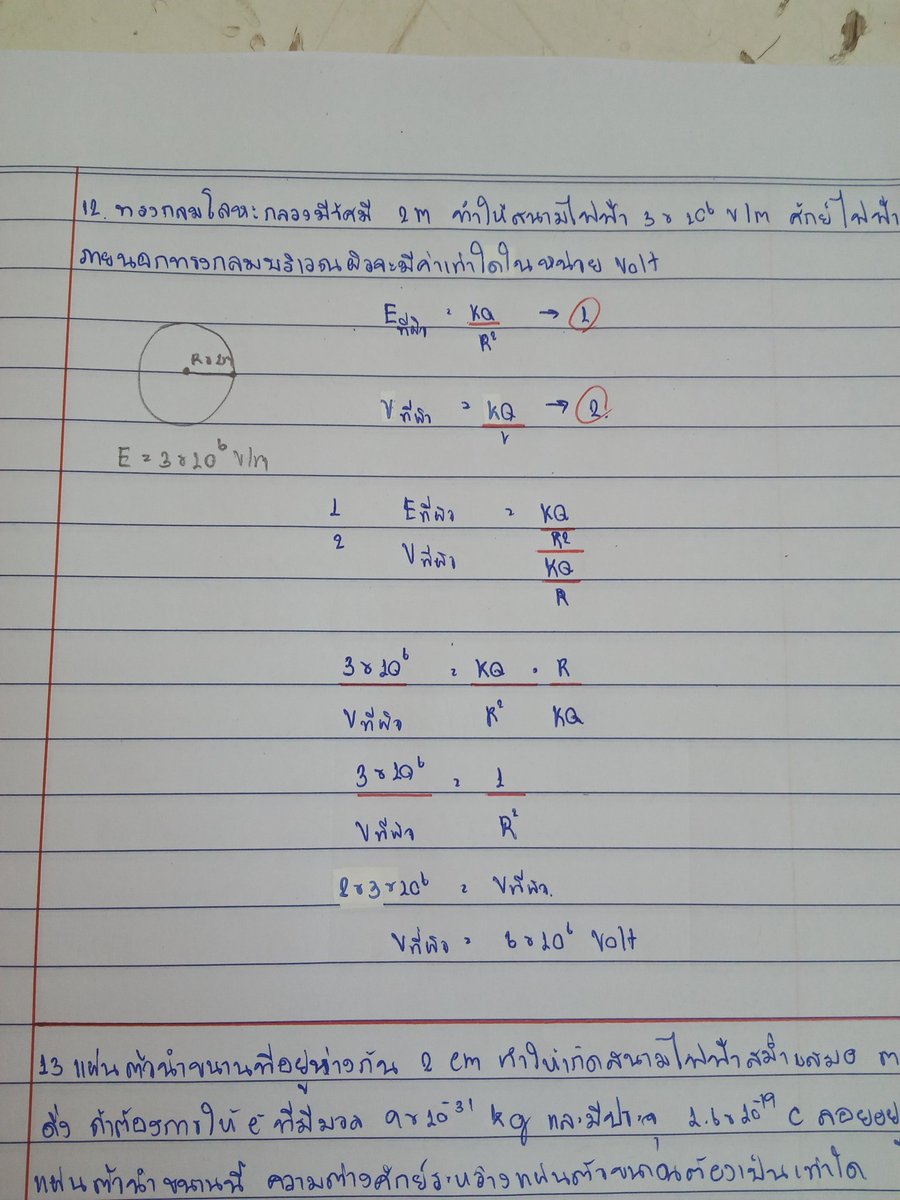 12. ทรงกลมโลหะกลวงมีรัศมี 2 m ทำให้สนามไฟฟ้า 3 x 10⁶ V/m ศักย์ไฟฟ้า
ภายนอกทรงกลมบริเวณผิวจะมีค่าเท่าใดในหน่วย Volt
E ที่ผิว = KQ / R² → ①
R = 2m
V ที่ผิว = KQ / r → ②
E = 3 x 10⁶ V/m
1 E ที่ผิว = KQ / R²
2 V ที่ผิว KQ / R
3 x 10⁶ / V ที่ผิว = KQ / R² · R / KQ
3 x 10⁶ / V ที่ผิว = 1 / R²
2 x 3 x 10⁶ = V ที่ผิว.
V ที่ผิว = 6 x 10⁶ Volt
13 แผ่นตัวนำขนานที่อยู่ห่างกัน 2 cm ทำให้เกิดสนามไฟฟ้าสม่ำเสมอ
ดิ่ง ถ้าต้องการให้ e⁻ ที่มีมวล 9 x 10⁻³¹ kg และมีประจุ 1.6 x 10⁻¹⁹ C ลอยอยู่
แผ่นตัวนำขนานนี้ ความต่างศักย์ระหว่างแผ่นตัวขนานต้องเป็นเท่าใด